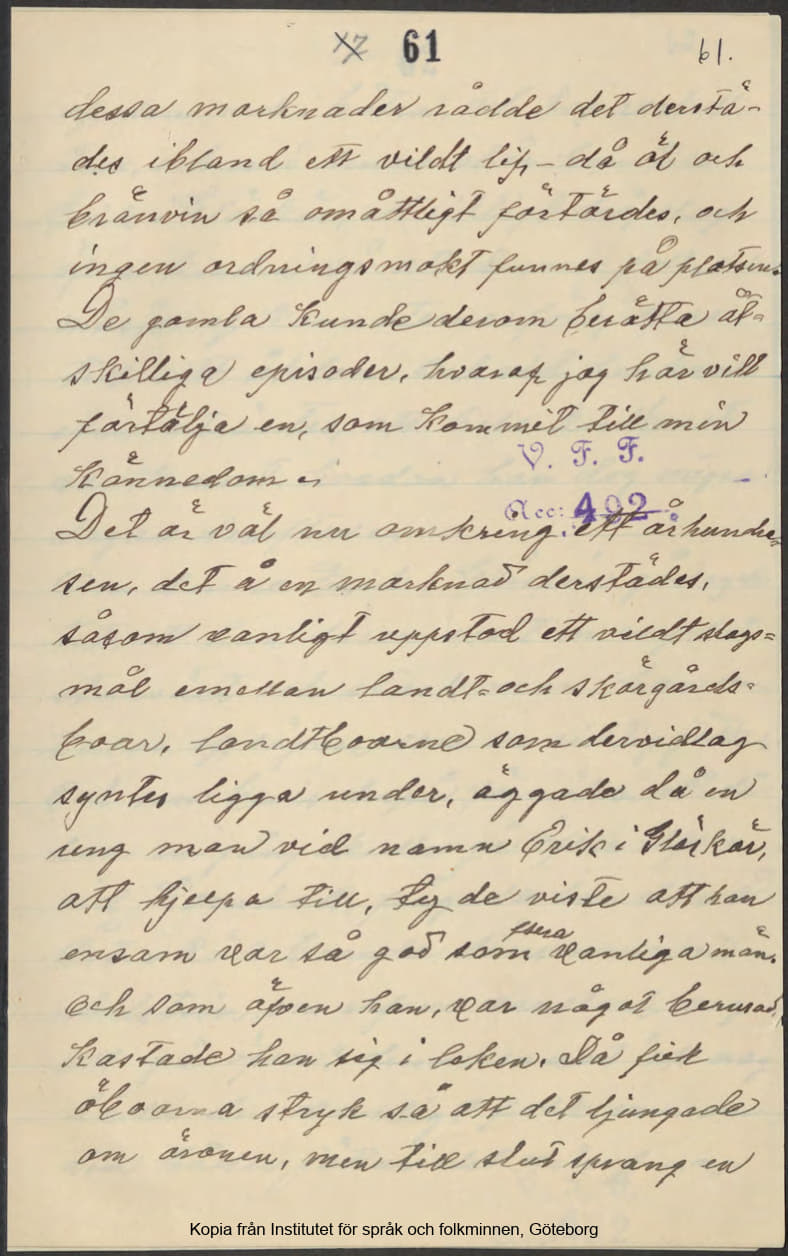 61
61.
dessa marknader rådde det derstä-
des ibland ett vildt lif – då öl och
bränvin så omåttligt förtärdes, och
ingen ordningsmakt funnes på platsen.
De gamla kunde derom berätta åt=
skilliga episoder, hvaraf jag här vill
förtälja en, som kommit till min
kännedom.
V. F. F.
Acc: 402
Det är väl nu omkring ett århundra=
sen, det å en marknad derstädes,
såsom vanligt uppstod ett vildt slags=
mål emellan landt= och skärgårds=
boar, landtboarne som dervidlag
syntes ligga under, äggade då en
ung man vid namn Erik i
att hjelpa till, ty de viste att han
ensam var så god som flera vanliga män.
Och som äfven han, var något berusad,
kastade han sig i leken. Då fick
öboarna stryk så att det ljungade
om öronen, men till slut sprang en
Kopia från Institutet för språk och folkminnen, Göteborg